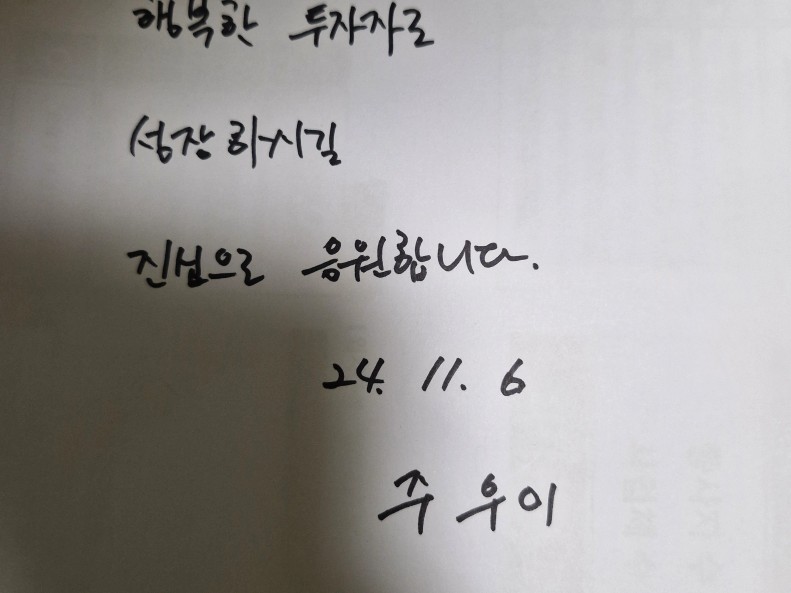 행복한 투자자로
성장하시길
진심으로 응원합니다.
24. 11. 6
주우이